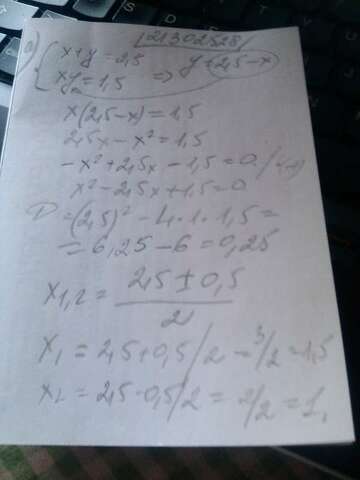 21302528
a) { x+y=2,5 => y=2,5-x
xy=1,5
x(2,5-x)=1,5
2,5x-x²=1,5
-x²+2,5x-1,5=0 /·(-1)
x²-2,5x+1,5=0
D=(2,5)²-4·1·1,5=
=6,25-6=0,25
x₁,₂= 2,5±0,5
2
x₁=2,5+0,5/2=3/2=1,5
x₂=2,5-0,5/2=2/2=1,